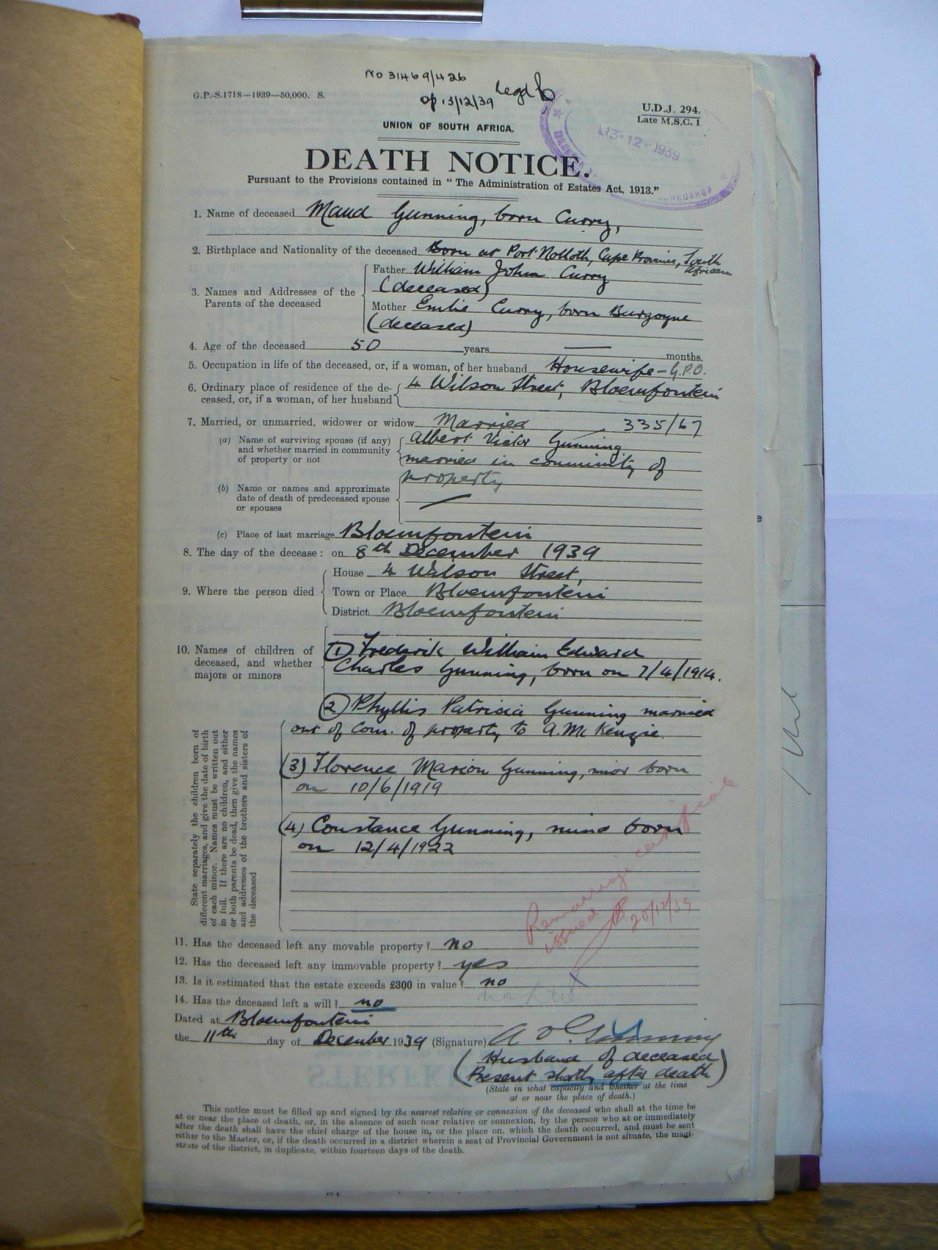 No 31469/426
G.P.-S.1718—1939—50,000. S.
Legd
Op 13/12/39
U.D.J. 294.
Late M.S.C. 1
UNION OF SOUTH AFRICA.
13-12-1939
DEATH NOTICE.
Pursuant to the Provisions contained in "The Administration of Estates Act, 1913."
1. Name of deceased Maud Gunning, born Curry,
2. Birthplace and Nationality of the deceased Born at Port Nolloth, Cape Province, South African
3. Names and Addresses of the Parents of the deceased
Father William John Curry
(deceased)
Mother Emilie Curry, born Burgoyne
(deceased)
4. Age of the deceased 50 years — months.
5. Occupation in life of the deceased, or, if a woman, of her husband Housewife – G.P.O.
6. Ordinary place of residence of the deceased, or, if a woman, of her husband 4 Wilson Street, Bloemfontein
7. Married, or unmarried, widower or widow Married 335/67
(a) Name of surviving spouse (if any) and whether married in community of property or not
Albert Victor Gunning
married in community of
property
(b) Name or names and approximate date of death of predeceased spouse or spouses —
(c) Place of last marriage Bloemfontein
8. The day of the decease: on 8th December 1939
9. Where the person died
House 4 Wilson Street,
Town or Place Bloemfontein
District Bloemfontein
10. Names of children of deceased, and whether majors or minors
(1) Frederick William Edward
Charles Gunning, born on 7/4/1914.
(2) Phyllis Patricia Gunning married
out of com. of property to A. McKenzie.
(3) Florence Marion Gunning, minor born
on 10/6/1919
(4) Constance Gunning, minor born
on 12/4/1922
State separately the children born of
different marriages, and give the date of birth
of each minor. Names must be written out
in full. If there are no children, and either
or both parents be dead, then give the names
and addresses of the brothers and sisters of
the deceased
Remarriage certificate
issued 20/12/39
11. Has the deceased left any movable property? no
12. Has the deceased left any immovable property? yes
13. Is it estimated that the estate exceeds £300 in value? no
14. Has the deceased left a will? no
Dated at Bloemfontein
the 11th day of December 1939 (Signature) A V Gunning
(Husband of deceased
Present shortly after death)
(State in what capacity and whether at the time
or at or near the place of death.)
This notice must be filled up and signed by the nearest relative or connexion of the deceased who shall at the time be
at or near the place of death, or, in the absence of such near relative or connexion, by the person who at or immediately
after the death shall have the chief charge of the house in, or the place on, which the death occurred, and must be sent
either to the Master, or, if the death occurred in a district wherein a seat of Provincial Government is not situate, the magi-
strate of the district, in duplicate, within fourteen days of the death.